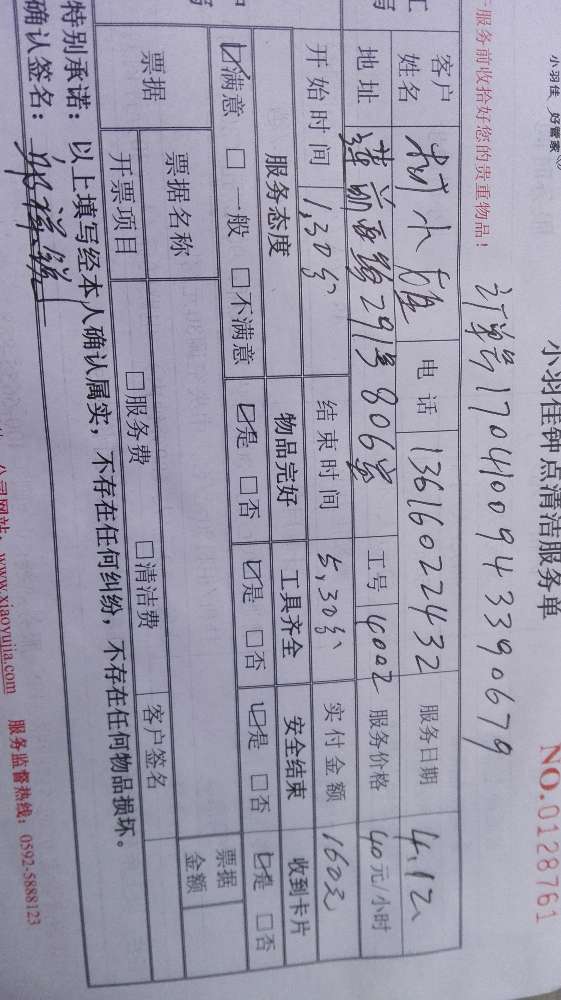 小羽佳 好管家
小羽佳钟点清洁服务单
NO.0128761
服务前收拾好您的贵重物品!
订单号17041009433390679
客户姓名 林小姐 电话 13616022432 服务日期 4.12
地址 莲前西路291号806室 工号 4002 服务价格 40元/小时
开始时间 1,30分 结束时间 5,30分 实付金额 160元
服务态度 物品完好 工具齐全 安全结束 收到卡片
☑满意 □一般 □不满意 ☑是 □否 ☑是 □否 ☑是 □否 ☑是 □否
票据 票据名称 票据金额
开票项目 □服务费 □清洁费 客户签名
特别承诺:以上填写经本人确认属实,不存在任何纠纷,不存在任何物品损坏。
确认签名:
公司网站:www.xiaoyujia.com 服务监督热线:0592-5888123